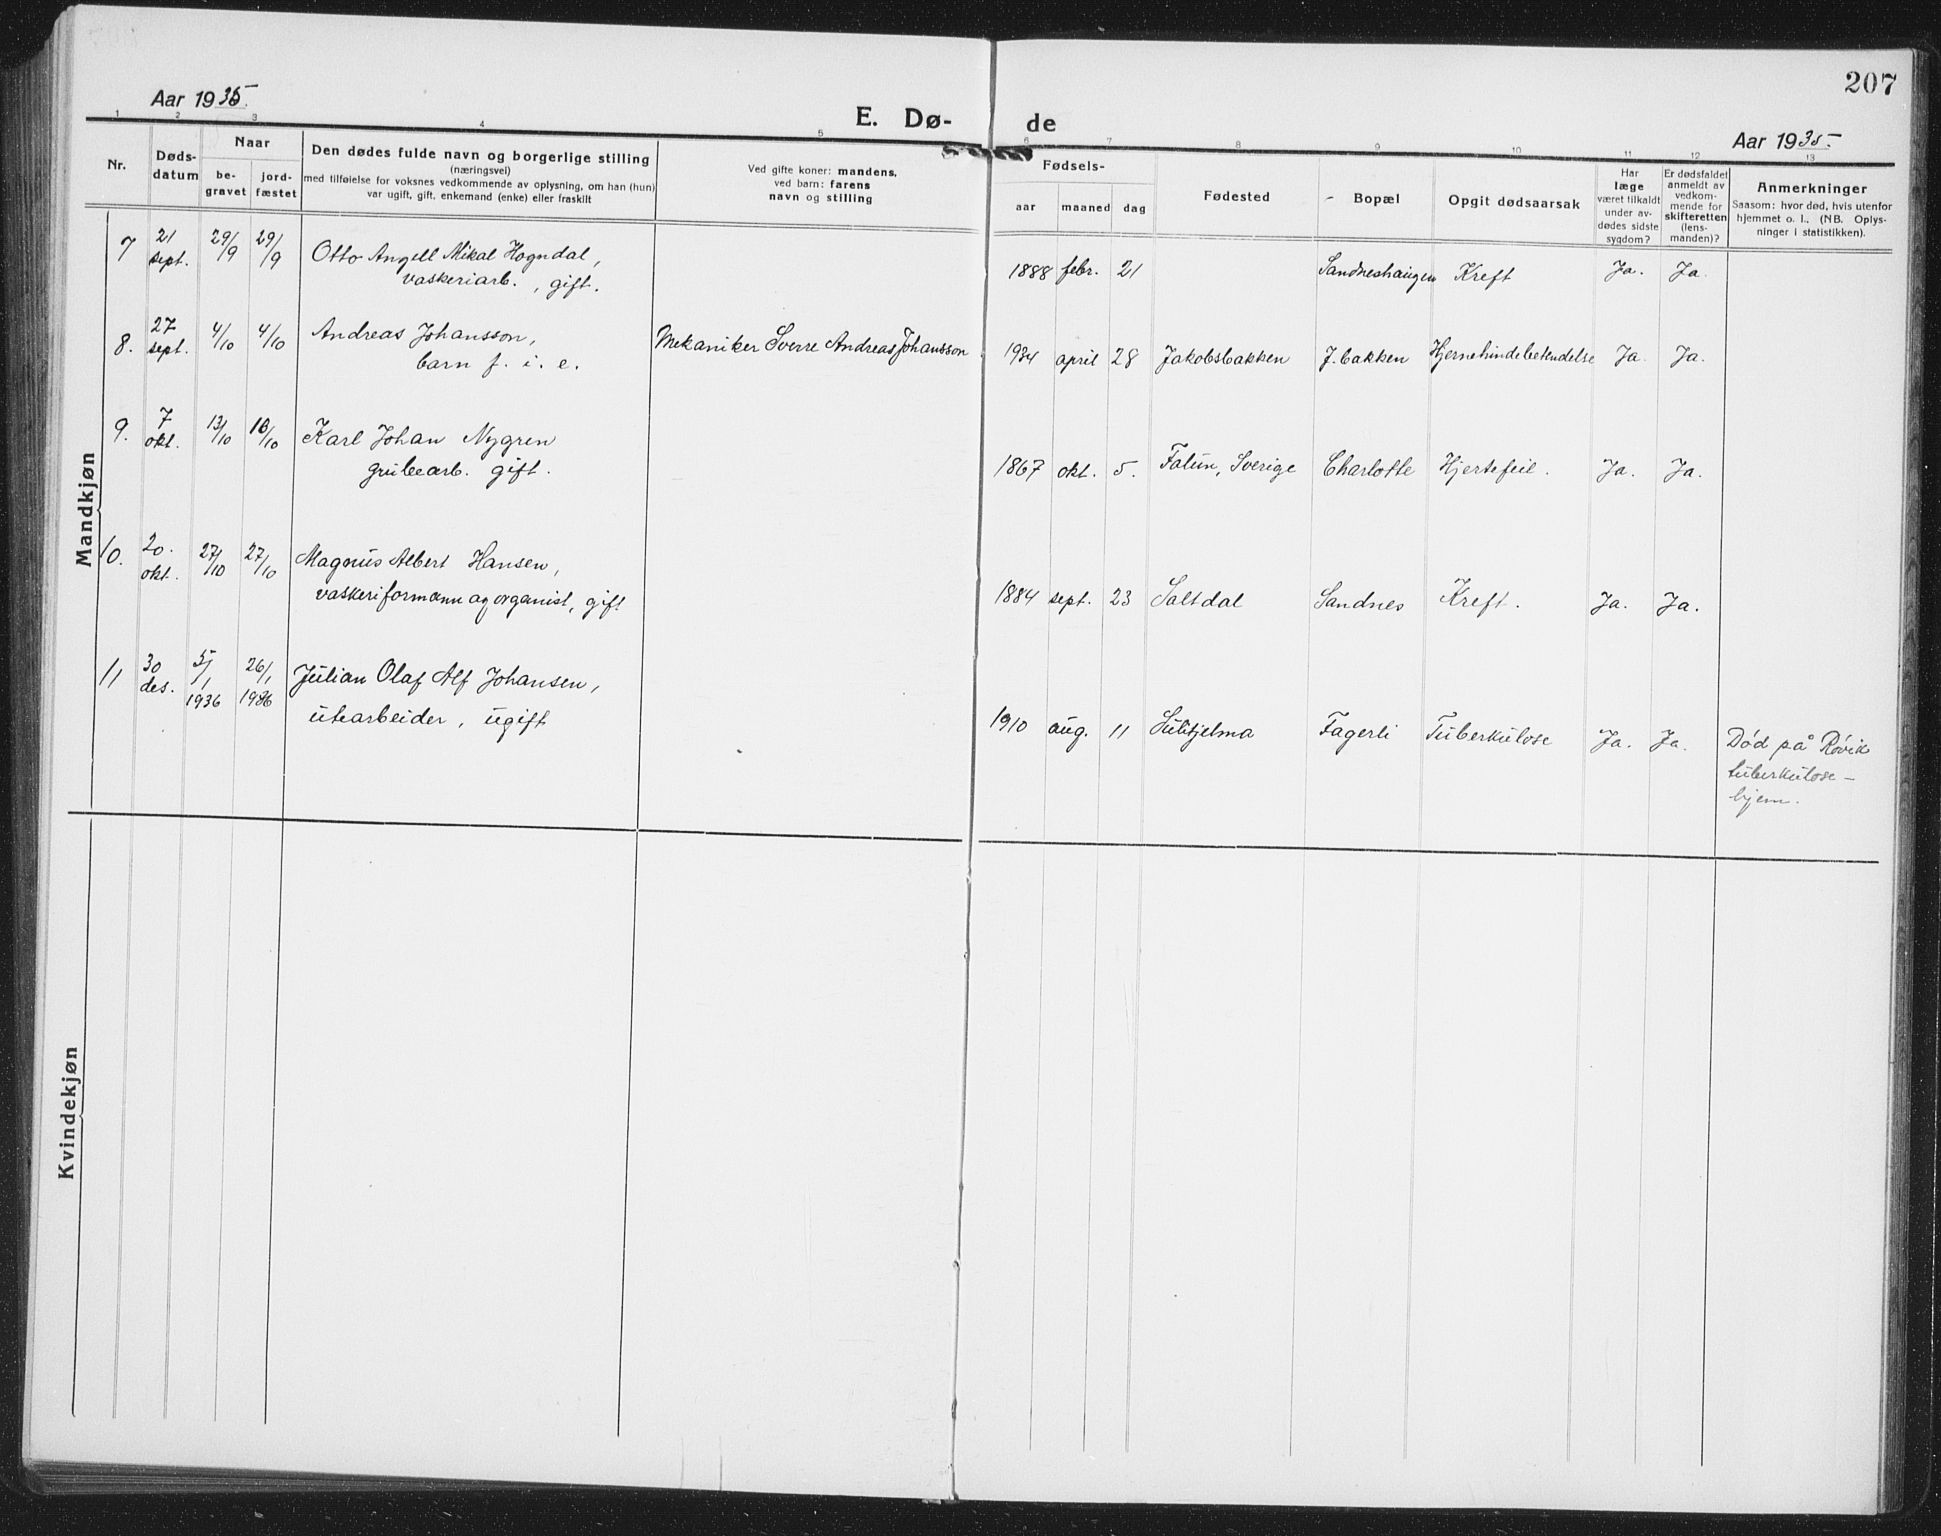 207
Aar 1935.
E. Dø-
de
Aar 1935.
1 2 3 4 5 6 7 8 9 10 11 12 13
Nr.
Døds-
datum
Naar
be-
gravet
jord-
fæstet
Den dødes fulde navn og borgerlige stilling
(næringsvei)
med tilføielse for voksnes vedkommende av oplysning, om han (hun)
var ugift, gift, enkemand (enke) eller fraskilt
Ved gifte koner: mandens,
ved barn: farens
navn og stilling
Fødsels-
aar maaned dag
Fødested
Bopæl
Opgit dødsaarsak
Har
læge
været tilkaldt
under av-
dødes sidste
sygdom?
Er dødsfaldet
anmeldt av
vedkom-
mende for
skifteretten
(lens-
manden)?
Anmerkninger
Saasom: hvor død, hvis utenfor
hjemmet o. l.. (NB. Oplys-
ninger i statistikken).
Mandkjøn
7 21 sept. 29/9 29/9 Otto Angell Mikal Hogndal,
vaskeriarb., gift.
1888 febr. 21 Sandneshaugen Kreft Ja. Ja.
8. 27 sept. 4/10 4/10 Andreas Johansson,
barn f. i. e.
Mekaniker Sverre Andreas Johansson
1934 april 28 Jakobsbakken J.bakken Hjernehindebetendelse Ja. Ja.
9. 7 okt. 13/10 13/10 Karl Johan Nygren
grubearb. gift.
1867 okt. 5. Falun, Sverige Charlotte Hjertefeil. Ja. Ja.
10. 20. okt. 27/10 27/10 Magnus Albert Hansen,
vaskeriformann og organist, gift
1884 sept. 23 Saltdal Sandnes Kreft. Ja. Ja.
11 30 des. 5/1 1936 26/1 1936 Julian Olaf Alf Johansen,
utearbeider, ugift
1910 aug. 11 Sulitjelma Fagerli Tuberkulose Ja. Ja. Død på Røvik
tuberkulose-
hjem.
Kvindekjøn